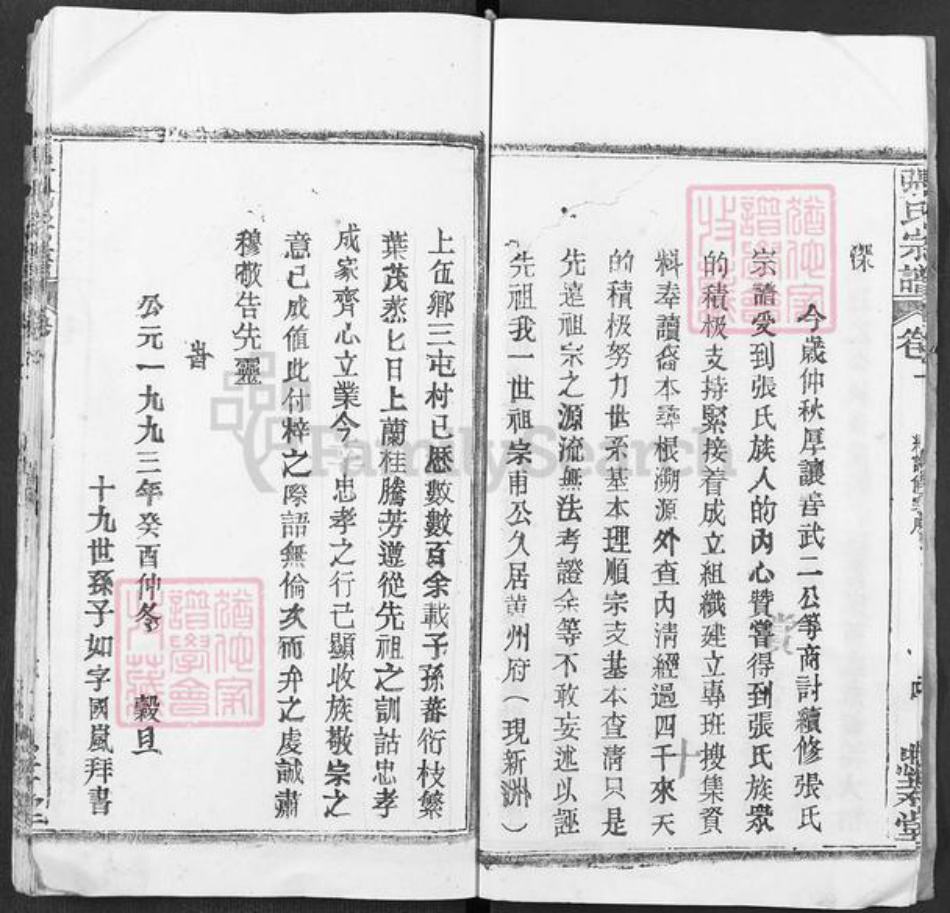 張氏宗譜
卷一
堂
深
今歲仲秋厚讓善武二公等商討續修張氏
宗譜受到張氏族人的內心贊嘗得到張氏族眾
的積极支持緊接着成立組織建立專班搜集資
料奉讀舊本尋根溯源外查內清經過四千來天
的積极努力世系基本理順宗支基本查清只是
先遠祖宗之源流無法考證余等不敢妄述以誣
先祖我一世祖宗甫公久居黄州府（現新洲）
上伍鄉三屯村已歷數數百余載子孫蕃衍枝繁
葉茂蒸匕日上蘭桂騰芳遵從先祖之訓詁忠孝
成家齊心立業今 忠孝之行己顯收族敬宗之
意已成值此付梓之際語無倫次而弁之虔誠肅
穆敬告先靈
旹
公元一九九三年癸酉仲冬 穀旦
十九世孫子如字國嵐拜書
FamilySearch